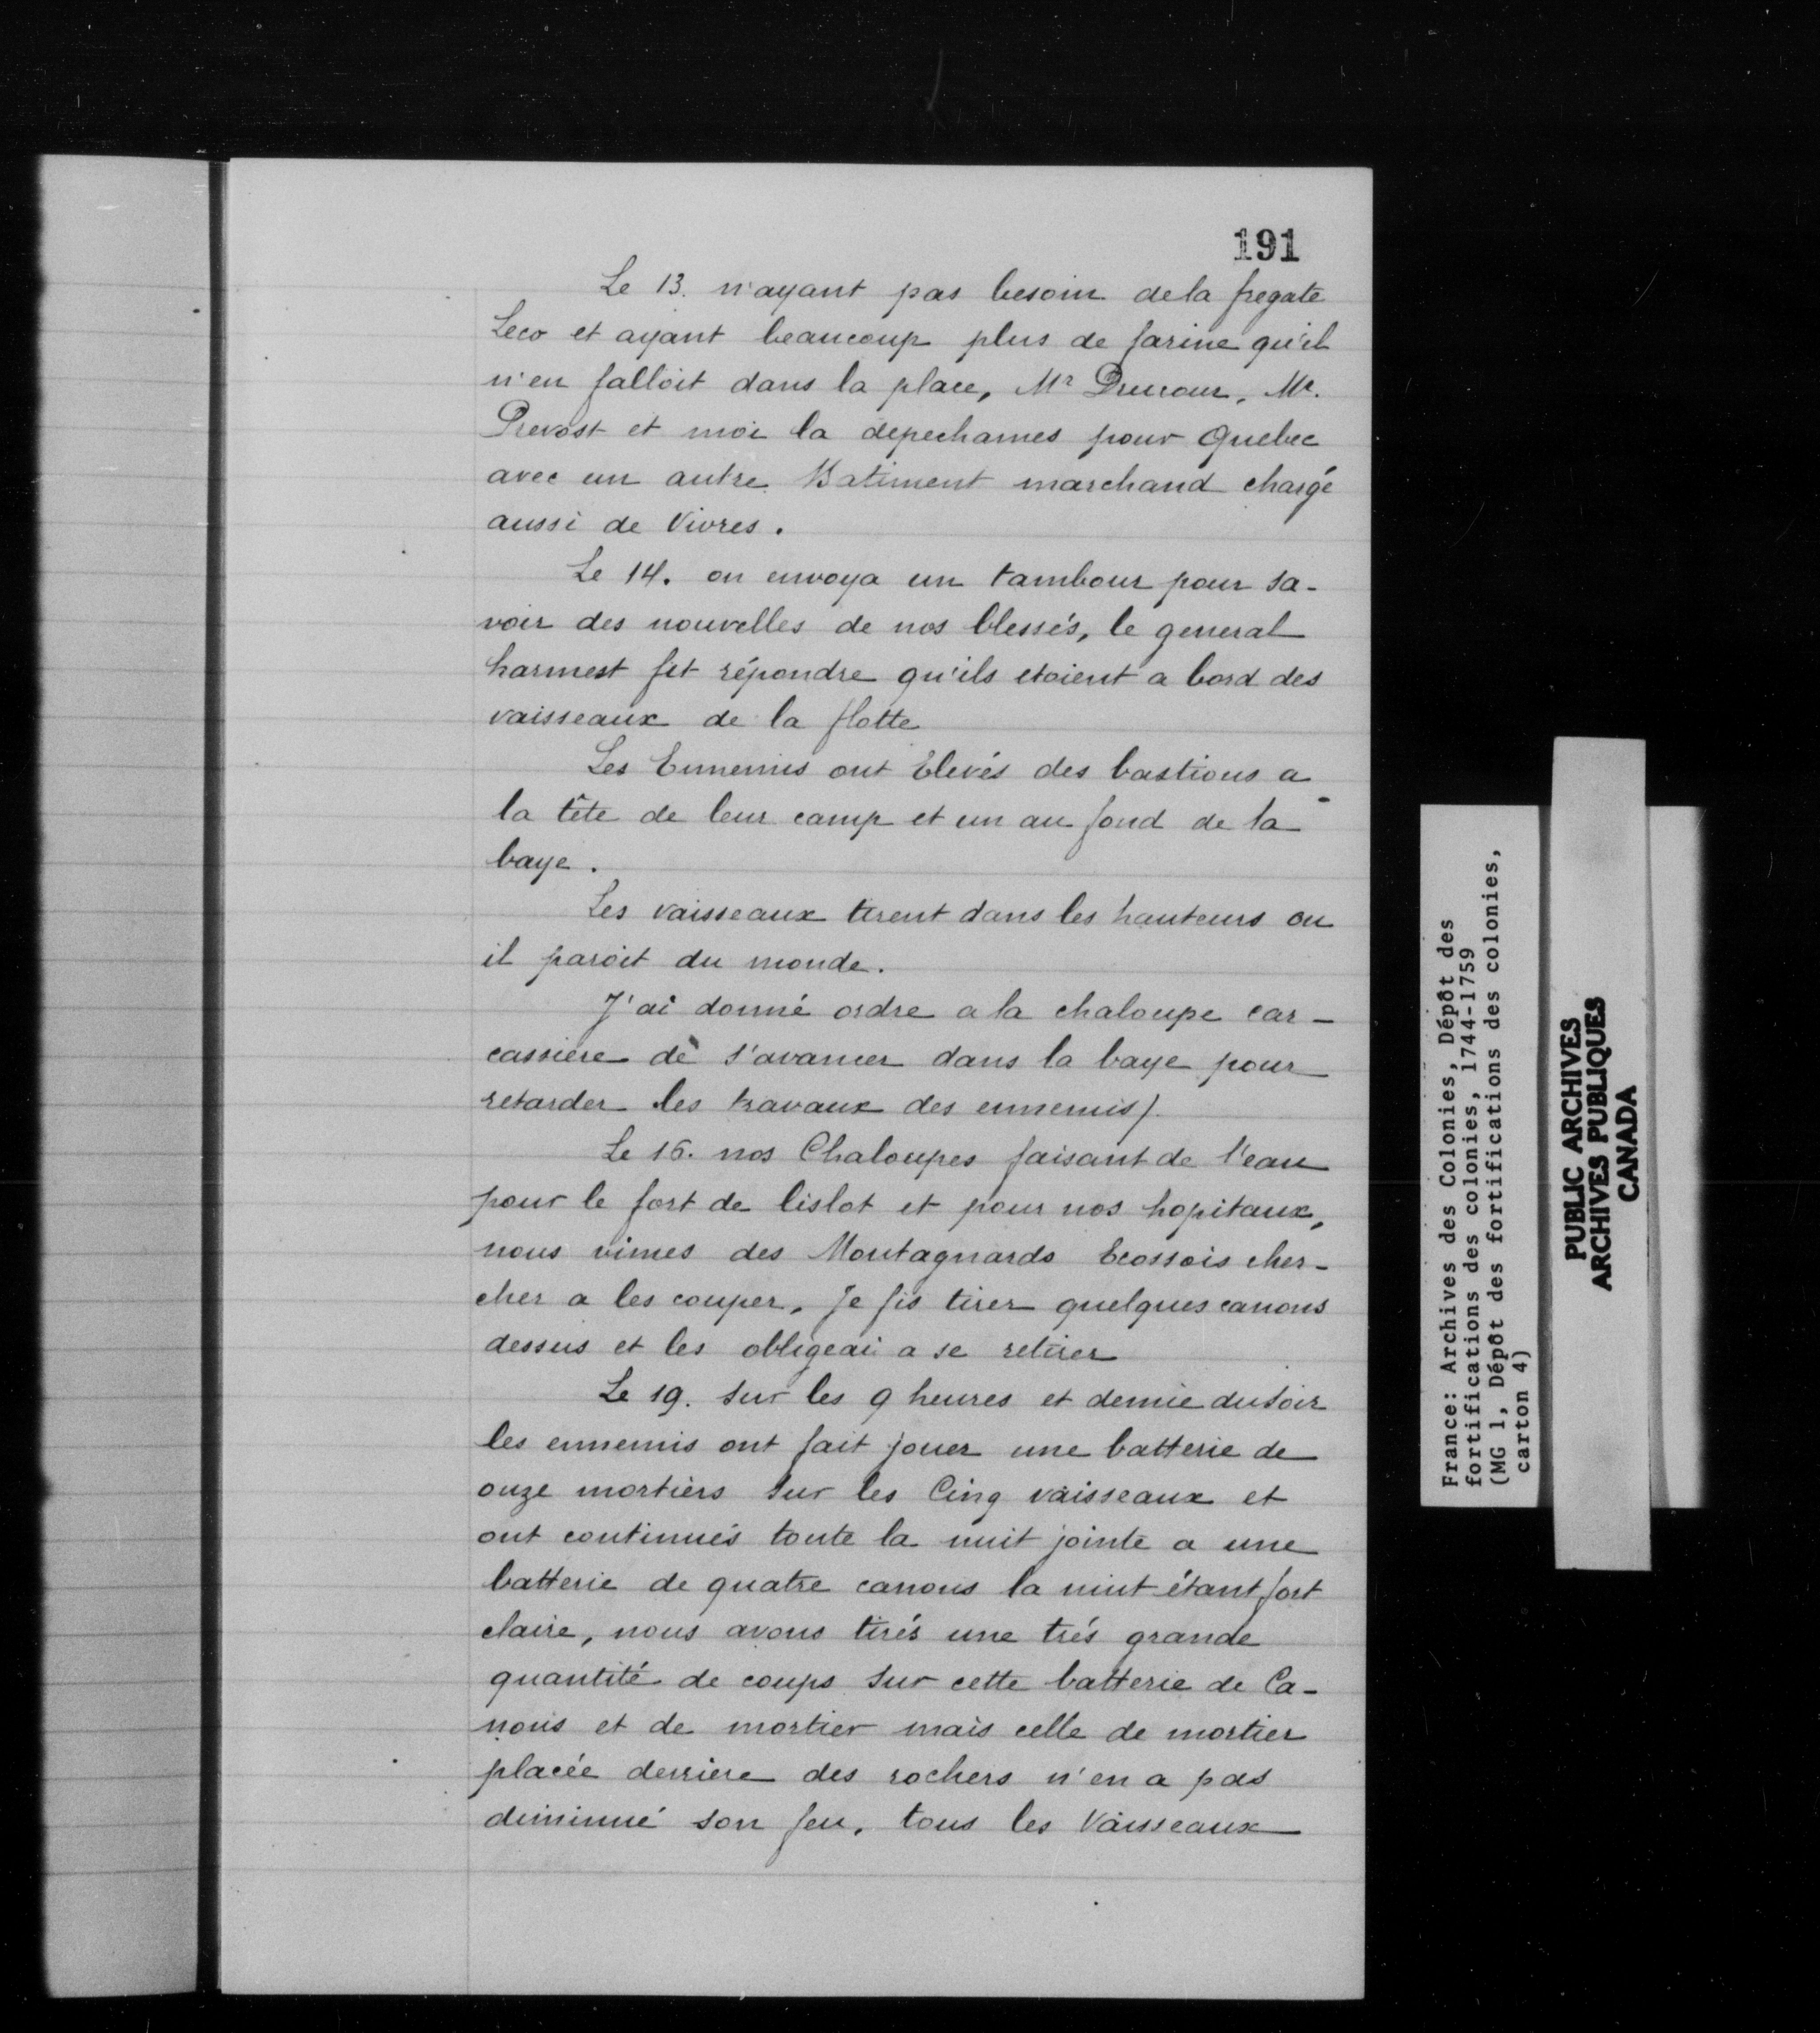 191
Le 13. n'ayant pas besoin de la fregate
Leco et ayant beaucoup plus de farine qu'il
n'en falloit dans la place, Mr Drucour, Mr.
Prevost et moi la depechames pour Quebec
avec un autre Batiment marchand chargé
aussi de Vivres.
Le 14. on envoya un tambour pour sa-
voir des nouvelles de nos blessés, le general
harmest fit répondre qu'ils etoient a bord des
vaisseaux de la flotte
Les Ennemis ont Elevés des bastions a
la tête de leur camp et un au fond de la
baye.
Les vaisseaux tirent dans les hauteurs ou
il paroit du monde.
J'ai donné ordre a la chaloupe car-
cassiere de s'avancer dans la baye pour
retarder les travaux des ennemis).
Le 16. nos Chaloupes faisant de l'eau
pour le fort de lislot et pour nos hopitaux,
nous vimes des Montagnards Ecossois cher-
cher a les couper, Je fis tirer quelques canons
dessus et les obligeai a se retirer
Le 19. sur les 9 heures et demie du soir
les ennemis ont fait jouer une batterie de
onze mortiers sur les Cinq vaisseaux et
ont continués toute la nuit jointe a une
batterie de quatre canons la nuit étant fort
claire, nous avons tirés une trés grande
quantité de coups sur cette batterie de Ca-
nons et de mortier mais celle de mortier
placée derriere des rochers n'en a pas
diminué son feu, tous les Vaisseaux
France: Archives des Colonies, Dépôt des
fortifications des colonies, 1744-1759
(MG 1, Dépôt des fortifications des colonies,
carton 4)
PUBLIC ARCHIVES
ARCHIVES PUBLIQUES
CANADA